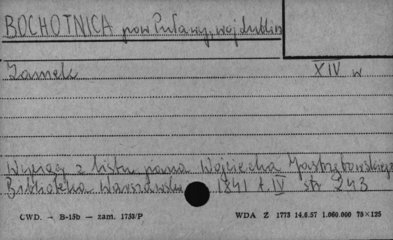 BOCHOTNICA pow Puławy, woj lublin
Zamek XIV w
Wyjątki z listu pana Wojciecha Jastrzębowskiego
Biblioteka Warszawska 1841 t. IV str 243
CWD. — B-15b — zam. 1733/P WDA Z 1773 14.6.57 1.060.000 79×125